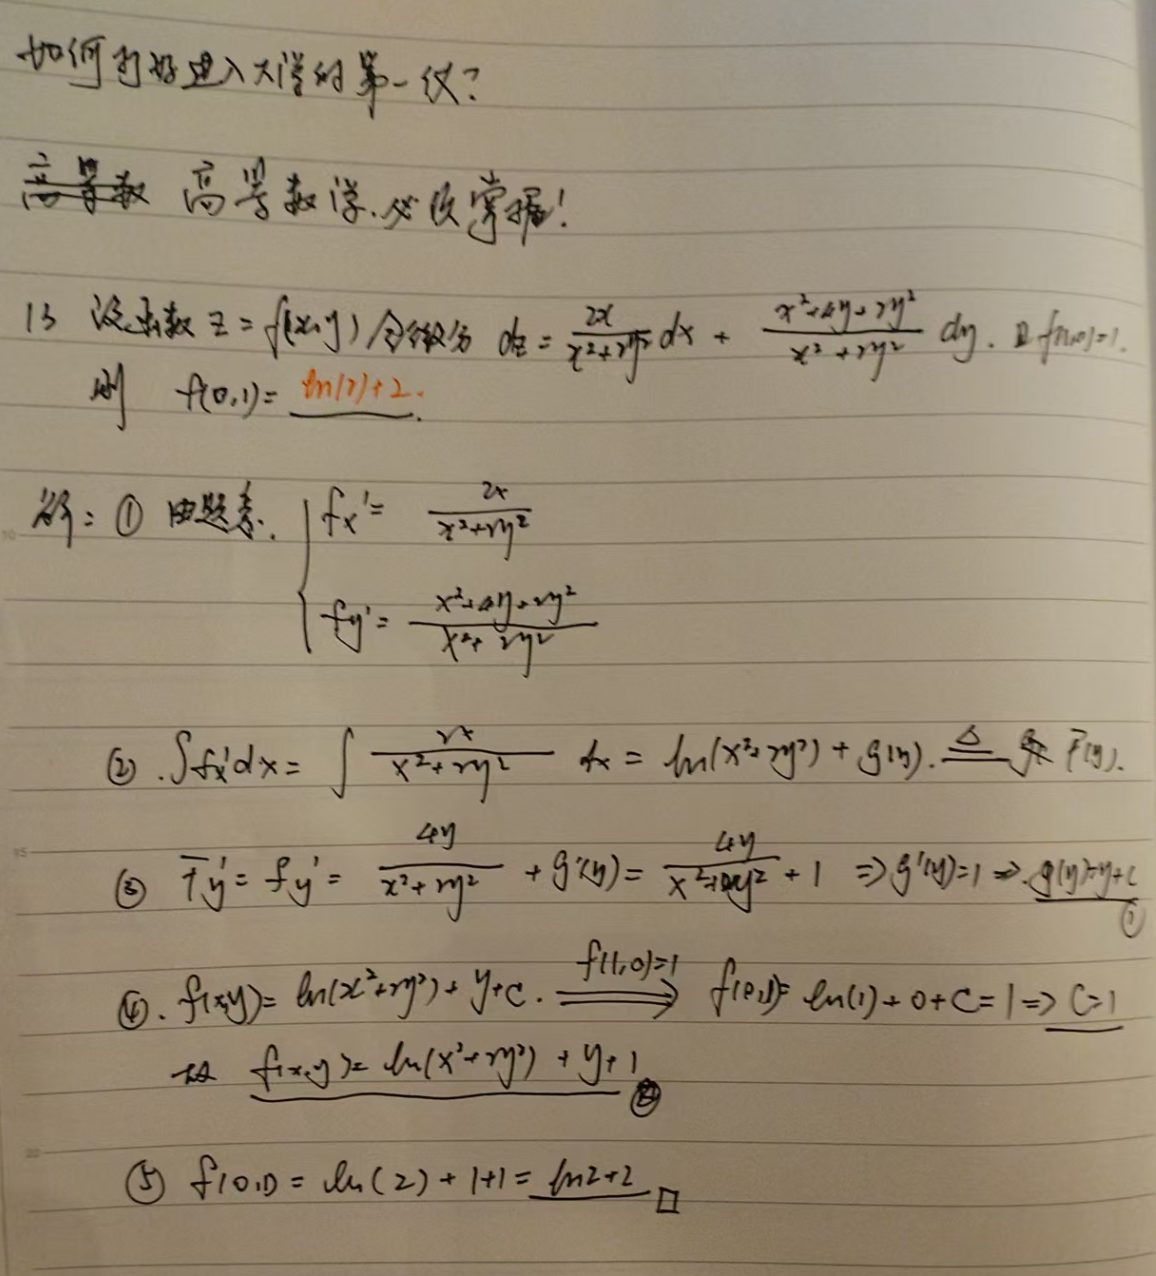 如何打好进入大学的第一仗?
高等数 高等数学.必须掌握!
13 设函数 z = f(x,y) 全微分 dz = \frac{2x}{x²+2y²} dx + \frac{x²+4y+2y²}{x²+2y²} dy. 且 f(1,0)=1.
则 f(0,1)= ln(2)+2.
解: ① 由题意. { fx' = \frac{2x}{x²+2y²}
fy' = \frac{x²+4y+2y²}{x²+2y²}
② . ∫fx'dx = ∫ \frac{2x}{x²+2y²} dx = ln(x²+2y²) + g(y). ≜ F(y).
③ Fy' = fy' = \frac{4y}{x²+2y²} + g'(y) = \frac{4y}{x²+2y²} + 1 ⇒ g'(y)=1 ⇒ g(y)=y+C ①
④. f(x,y)= ln(x²+2y²) + y+C. \xRightarrow{f(1,0)=1} f(0,1)= ln(1) + 0 + C = 1 ⇒ C=1
故 f(x,y)= ln(x²+2y²) + y+1 ②
⑤ f(0,1) = ln(2) + 1+1 = ln2+2 □